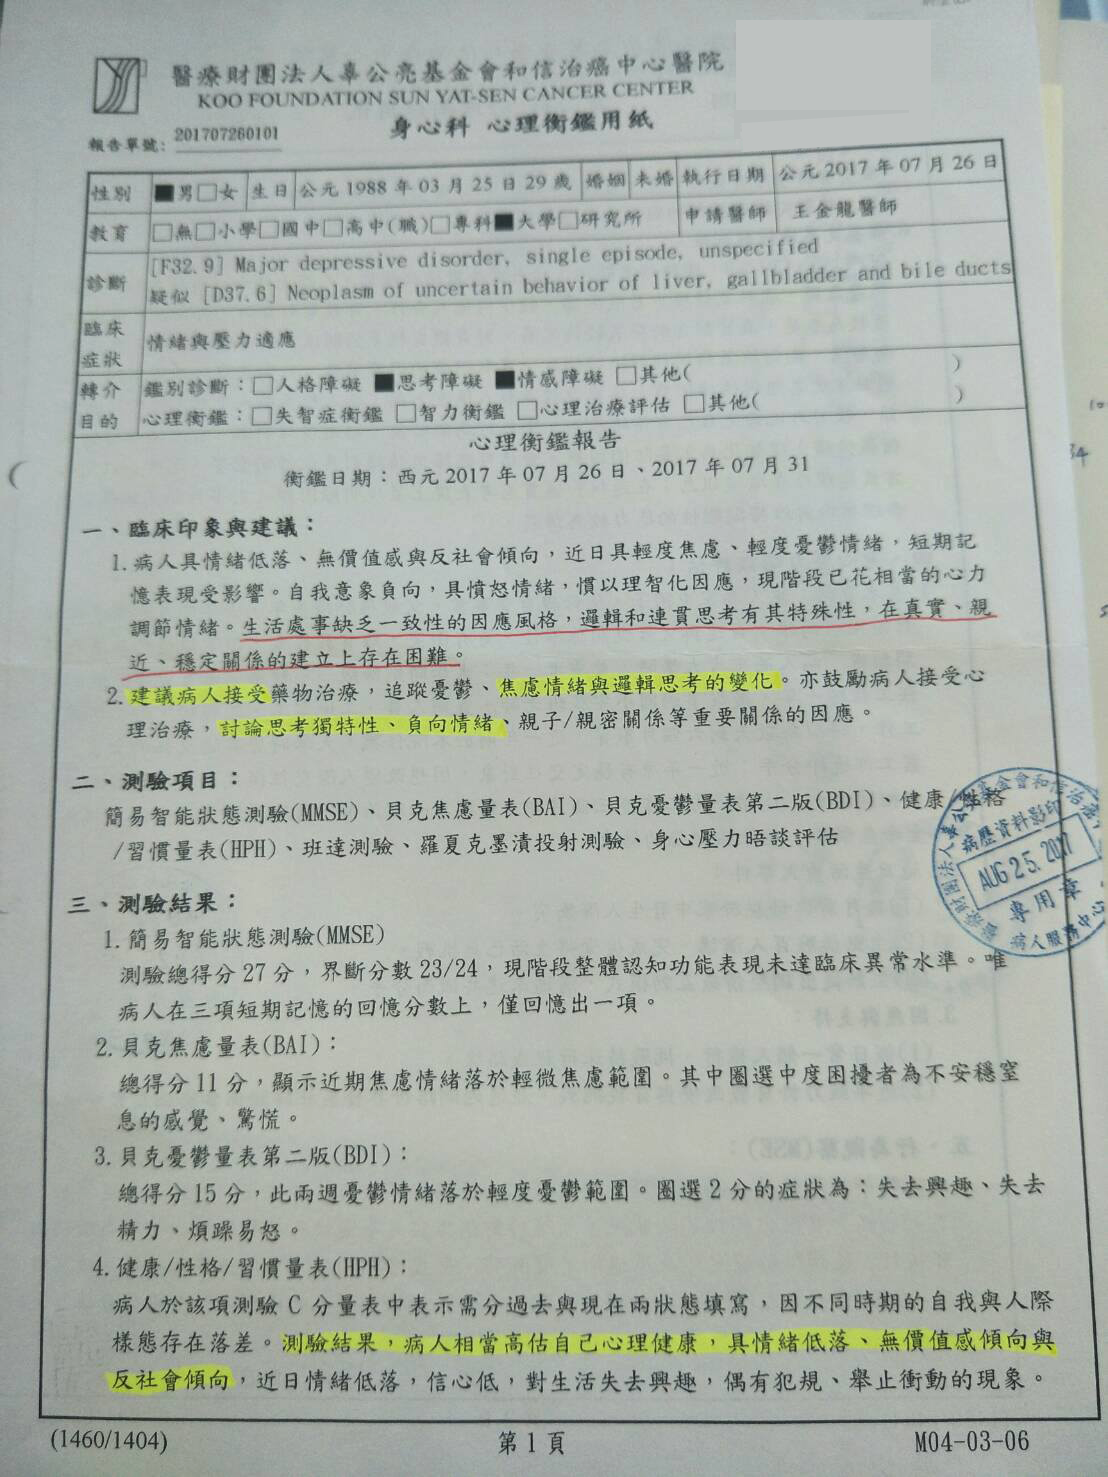 醫療財團法人辜公亮基金會和信治癌中心醫院
KOO FOUNDATION SUN YAT-SEN CANCER CENTER
身心科 心理衡鑑用紙
報告單號: 201707260101
性別 ■男□女 生日 公元 1988 年 03 月 25 日 29 歲 婚姻 未婚 執行日期 公元 2017 年 07 月 26 日
教育 □無□小學□國中□高中(職)□專科■大學□研究所 申請醫師 王金龍醫師
診斷 [F32.9] Major depressive disorder, single episode, unspecified
疑似 [D37.6] Neoplasm of uncertain behavior of liver, gallbladder and bile ducts
臨床症狀 情緒與壓力適應
轉介目的 鑑別診斷：□人格障礙 ■思考障礙 ■情感障礙 □其他( )
心理衡鑑：□失智症衡鑑 □智力衡鑑 □心理治療評估 □其他( )
心理衡鑑報告
衡鑑日期：西元 2017 年 07 月 26 日、2017 年 07 月 31
一、臨床印象與建議：
1. 病人具情緒低落、無價值感與反社會傾向，近日具輕度焦慮、輕度憂鬱情緒，短期記
憶表現受影響。自我意象負向，具憤怒情緒，慣以理智化因應，現階段已花相當的心力
調節情緒。生活處事缺乏一致性的因應風格，邏輯和連貫思考有其特殊性，在真實、親
近、穩定關係的建立上存在困難。
2. 建議病人接受藥物治療，追蹤憂鬱、焦慮情緒與邏輯思考的變化。亦鼓勵病人接受心
理治療，討論思考獨特性、負向情緒、親子/親密關係等重要關係的因應。
二、測驗項目：
簡易智能狀態測驗(MMSE)、貝克焦慮量表(BAI)、貝克憂鬱量表第二版(BDI)、健康/性格
/習慣量表(HPH)、班達測驗、羅夏克墨漬投射測驗、身心壓力晤談評估
病歷資料影印
AUG 25. 2017
專用章
病人服務中心
三、測驗結果：
1. 簡易智能狀態測驗(MMSE)
測驗總得分 27 分，界斷分數 23/24，現階段整體認知功能表現未達臨床異常水準。唯
病人在三項短期記憶的回憶分數上，僅回憶出一項。
2. 貝克焦慮量表(BAI)：
總得分 11 分，顯示近期焦慮情緒落於輕微焦慮範圍。其中圈選中度困擾者為不安穩窒
息的感覺、驚慌。
3. 貝克憂鬱量表第二版(BDI)：
總得分 15 分，此兩週憂鬱情緒落於輕度憂鬱範圍。圈選 2 分的症狀為：失去興趣、失去
精力、煩躁易怒。
4. 健康/性格/習慣量表(HPH)：
病人於該項測驗 C 分量表中表示需分過去與現在兩狀態填寫，因不同時期的自我與人際
樣態存在落差。測驗結果，病人相當高估自己心理健康，具情緒低落、無價值感傾向與
反社會傾向，近日情緒低落，信心低，對生活失去興趣，偶有犯規、舉止衝動的現象。
(1460/1404) 第 1 頁 M04-03-06